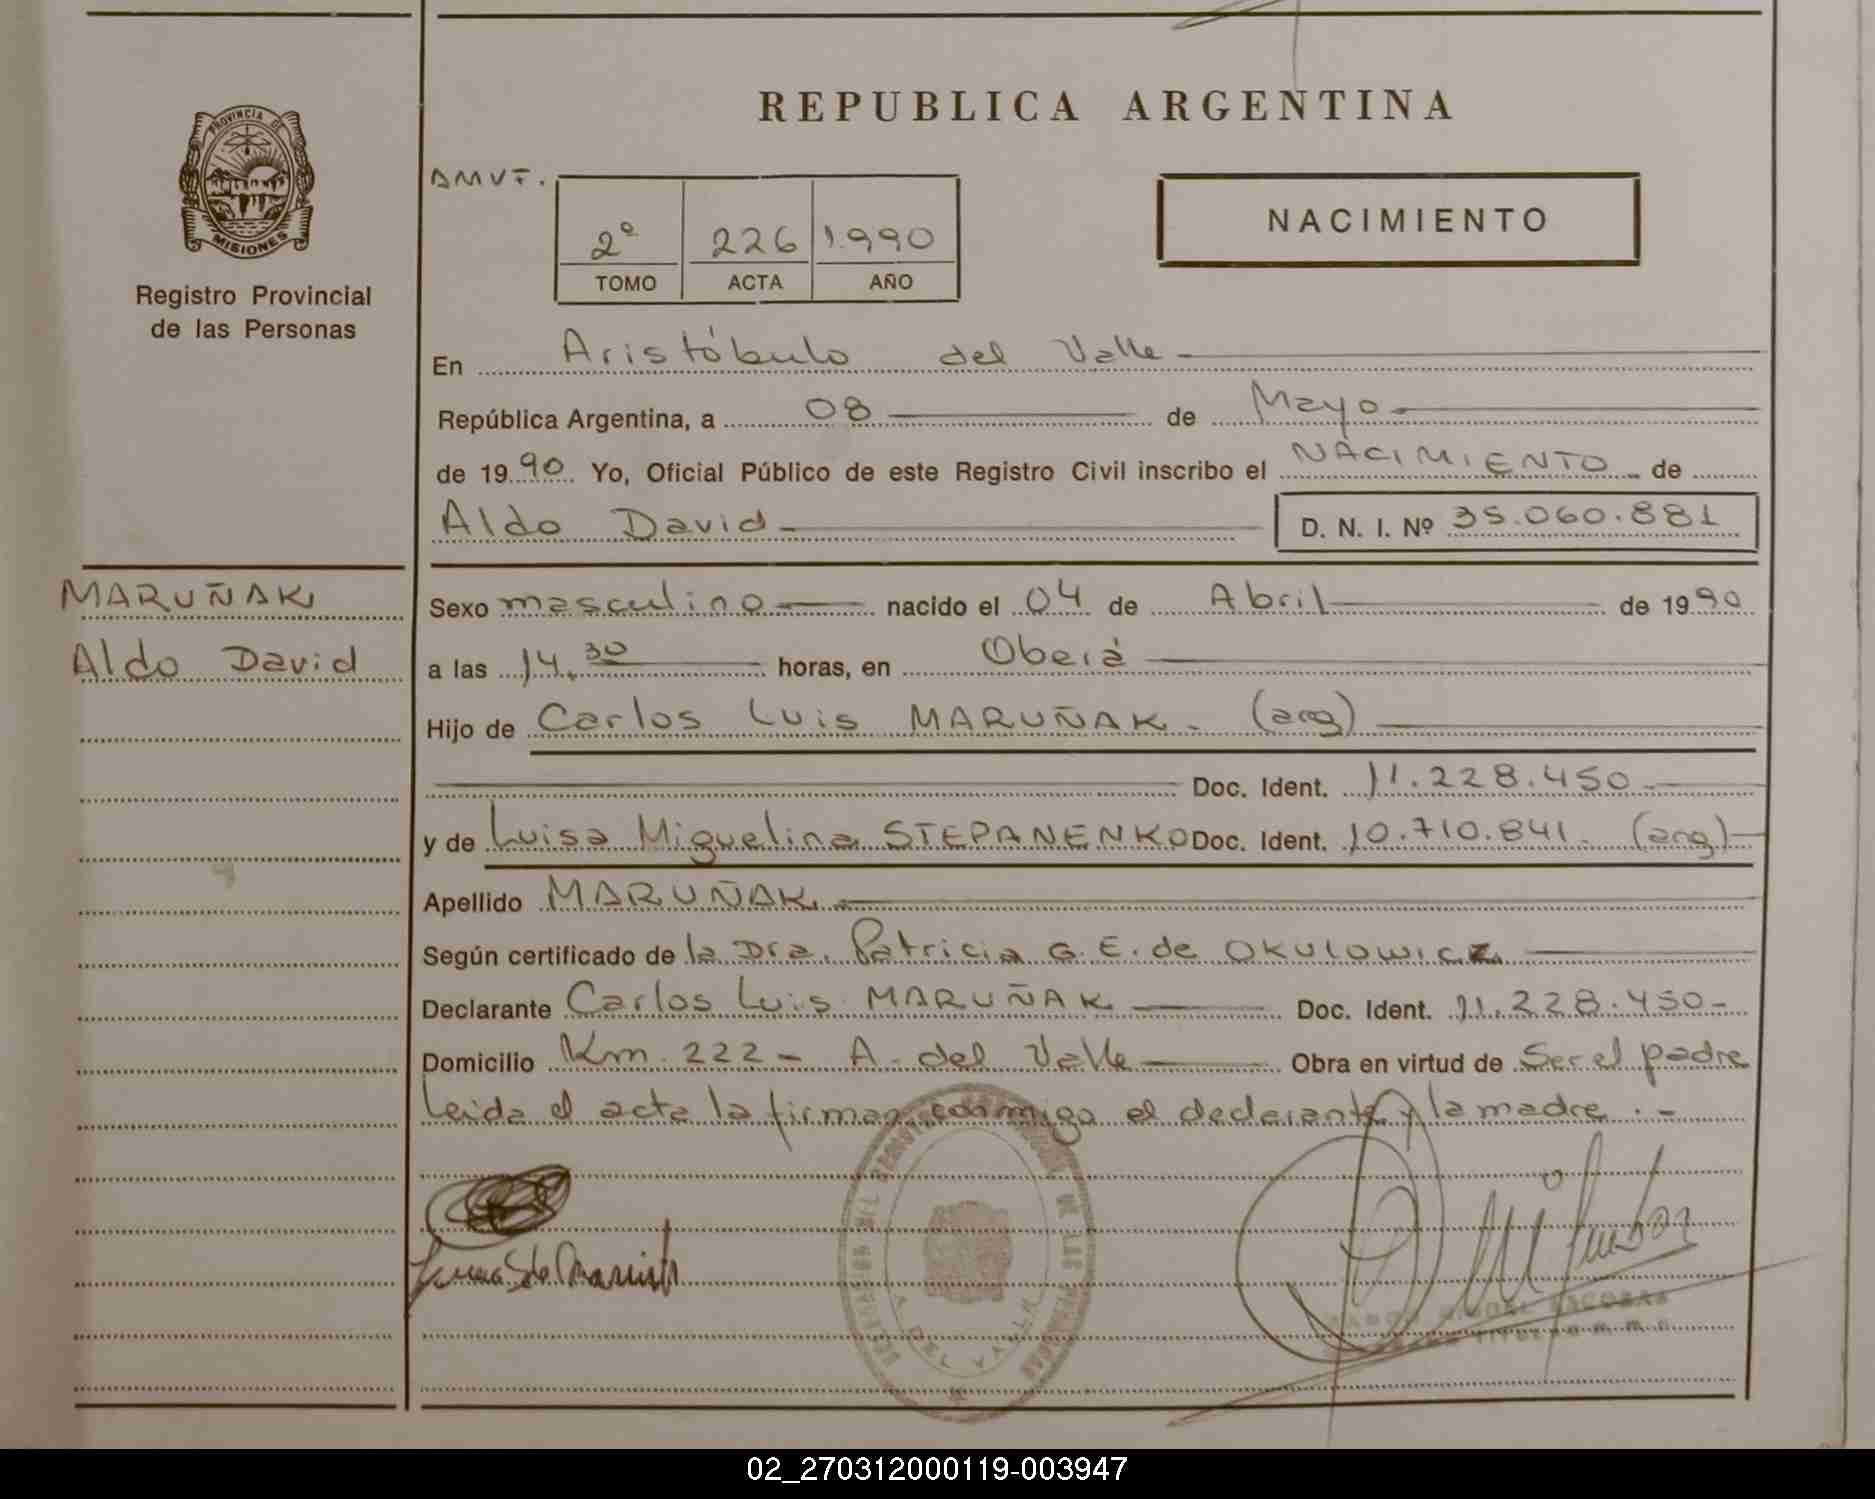 REPUBLICA ARGENTINA
PROVINCIA DE
MISIONES
Registro Provincial
de las Personas
AMVF.
2º 226 1.990
TOMO ACTA AÑO
NACIMIENTO
En Aristóbulo del Valle
República Argentina, a 08 de Mayo
de 1990 Yo, Oficial Público de este Registro Civil inscribo el NACIMIENTO de
Aldo David D. N. I. Nº 35.060.881
MARUÑAK
Aldo David
Sexo masculino nacido el 04 de Abril de 1990
a las 14.30 horas, en Oberá
Hijo de Carlos Luis MARUÑAK. (arg)
Doc. Ident. 11.228.450
y de Luisa Miguelina STEPANENKO Doc. Ident. 10.710.841. (arg)
Apellido MARUÑAK
Según certificado de la Dra. Patricia G. E. de OKULOWICZ
Declarante Carlos Luis MARUÑAK Doc. Ident. 11.228.450-
Domicilio Km. 222 - A. del Valle Obra en virtud de Ser el padre
Leida el acta la firman conmigo el declarante y la madre . -
A. DEL VALLE
ESCOBAR
02_270312000119-003947